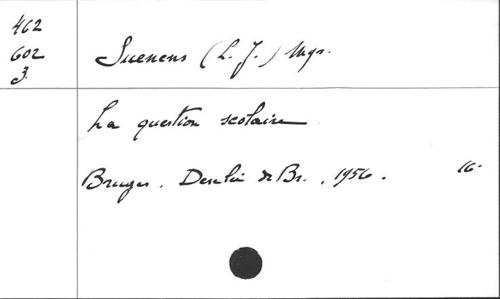 462
602
3.
Suenens (L. J.) Mgr.
La question scolaire
Bruges. Desclée de Br., 1956. 16°